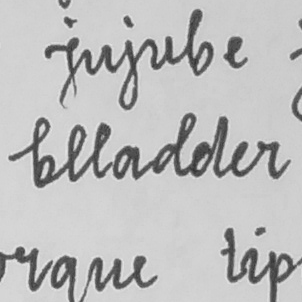 jujube
blladder
rque tip